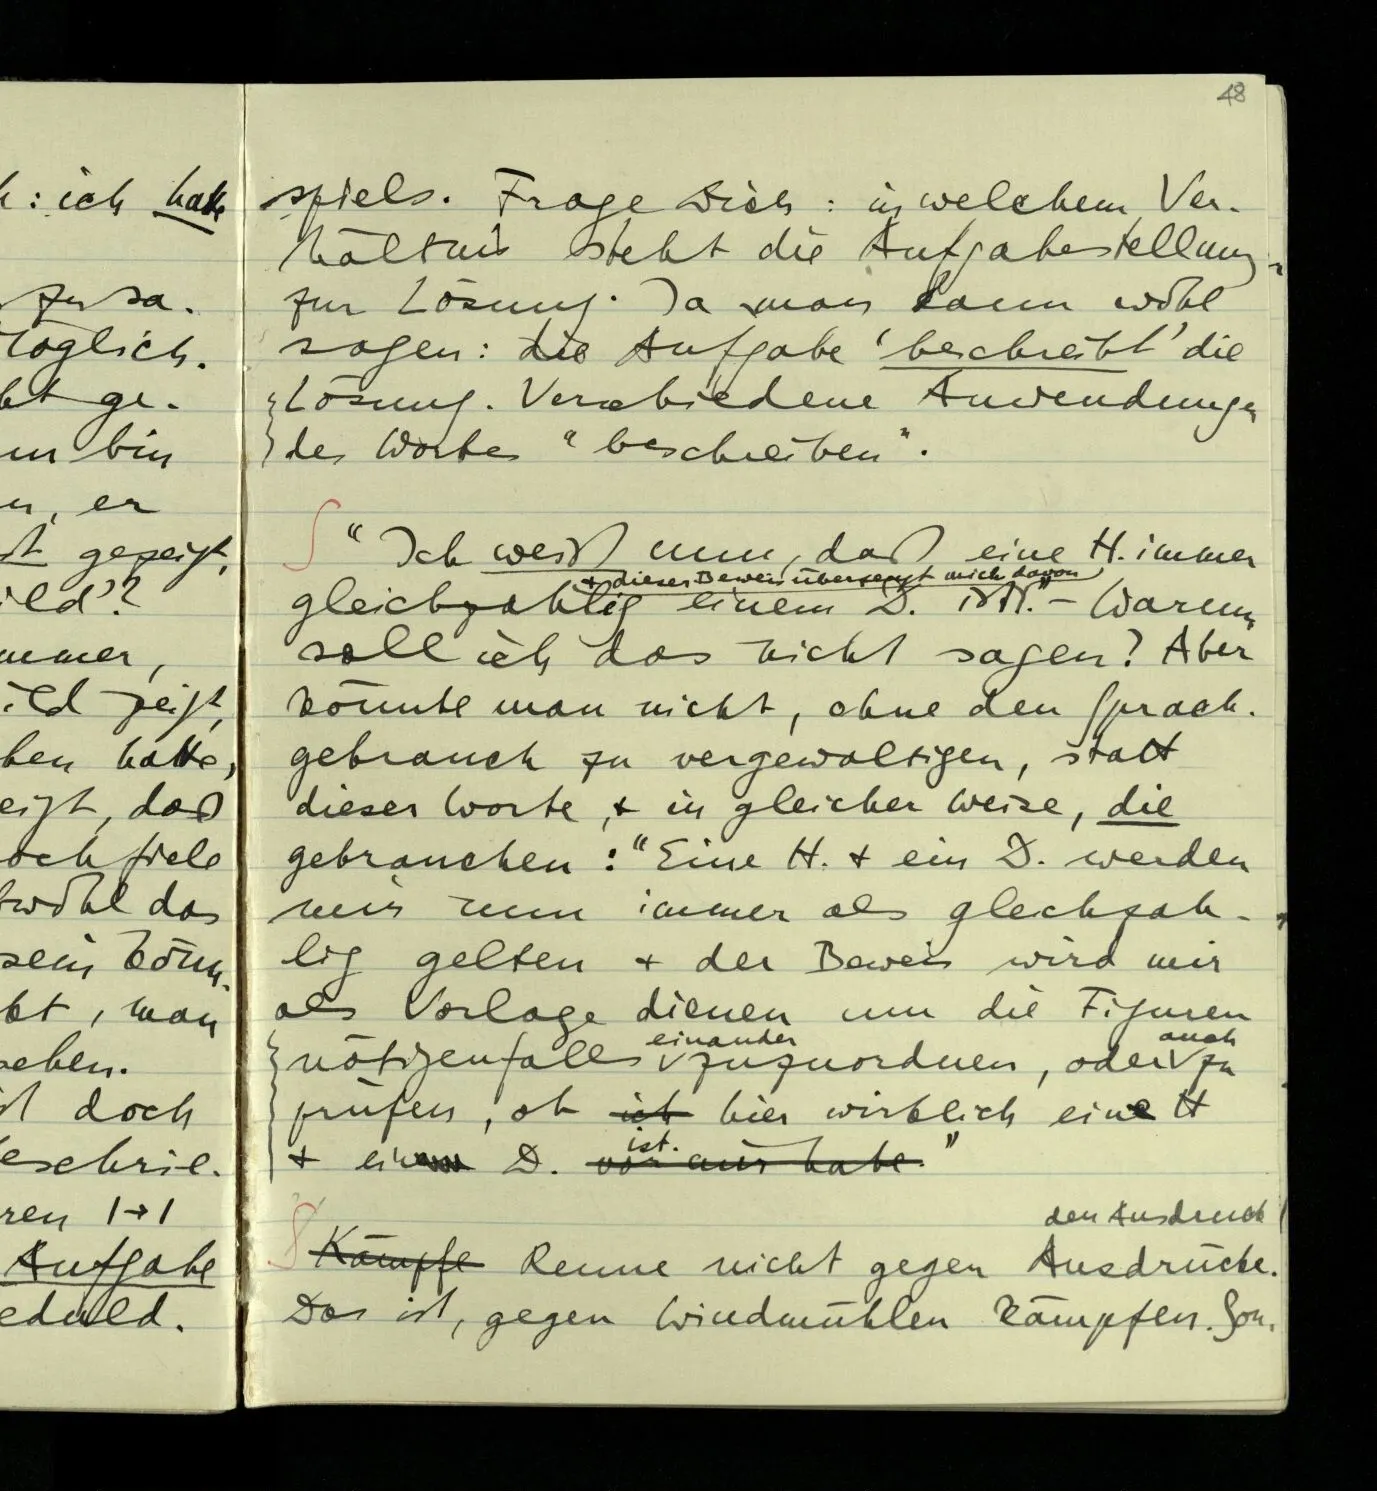 48
h: ich hatte
zu sa.
löglich.
bt ge.
um bin
n, er
st gezeigt,
ild'?
mmer,
ild zeigt,
ben hatte,
eigt, daß
och fiele
twohl das
sein könn.
bt, man
sehen.
st doch
eschrie.
ren 1→1
Aufgabe
eduld.
spiels. Frage Dich: in welchem Ver-
hältnis steht die Aufgabestellung
zur Lösung. Ja man kann wohl
sagen: die Aufgabe 'beschreibt' die
Lösung. Verschiedene Anwendungen
des Wortes "beschreiben".
∫ "Ich weiß nun, daß eine H. immer
+ dieser Beweis überzeugt mich davon
gleichzahlig einem D. ist." – Warum
soll ich das nicht sagen? Aber
könnte man nicht, ohne den Sprach-
gebrauch zu vergewaltigen, statt
dieser Worte, + in gleicher Weise, die
gebrauchen: "Eine H. + ein D. werden
mir nun immer als gleichzah-
lig gelten + der Beweis wird mir
als Vorlage dienen um die Figuren
einander auch
nötigenfalls zuzuordnen, oder zu
prüfen, ob ich hier wirklich eine H
ist.
+ ein D. vor mir habe."
den Ausdruck
∫ Kämpfe Renne nicht gegen Ausdrücke.
Das ist, gegen Windmühlen kämpfen. Son.